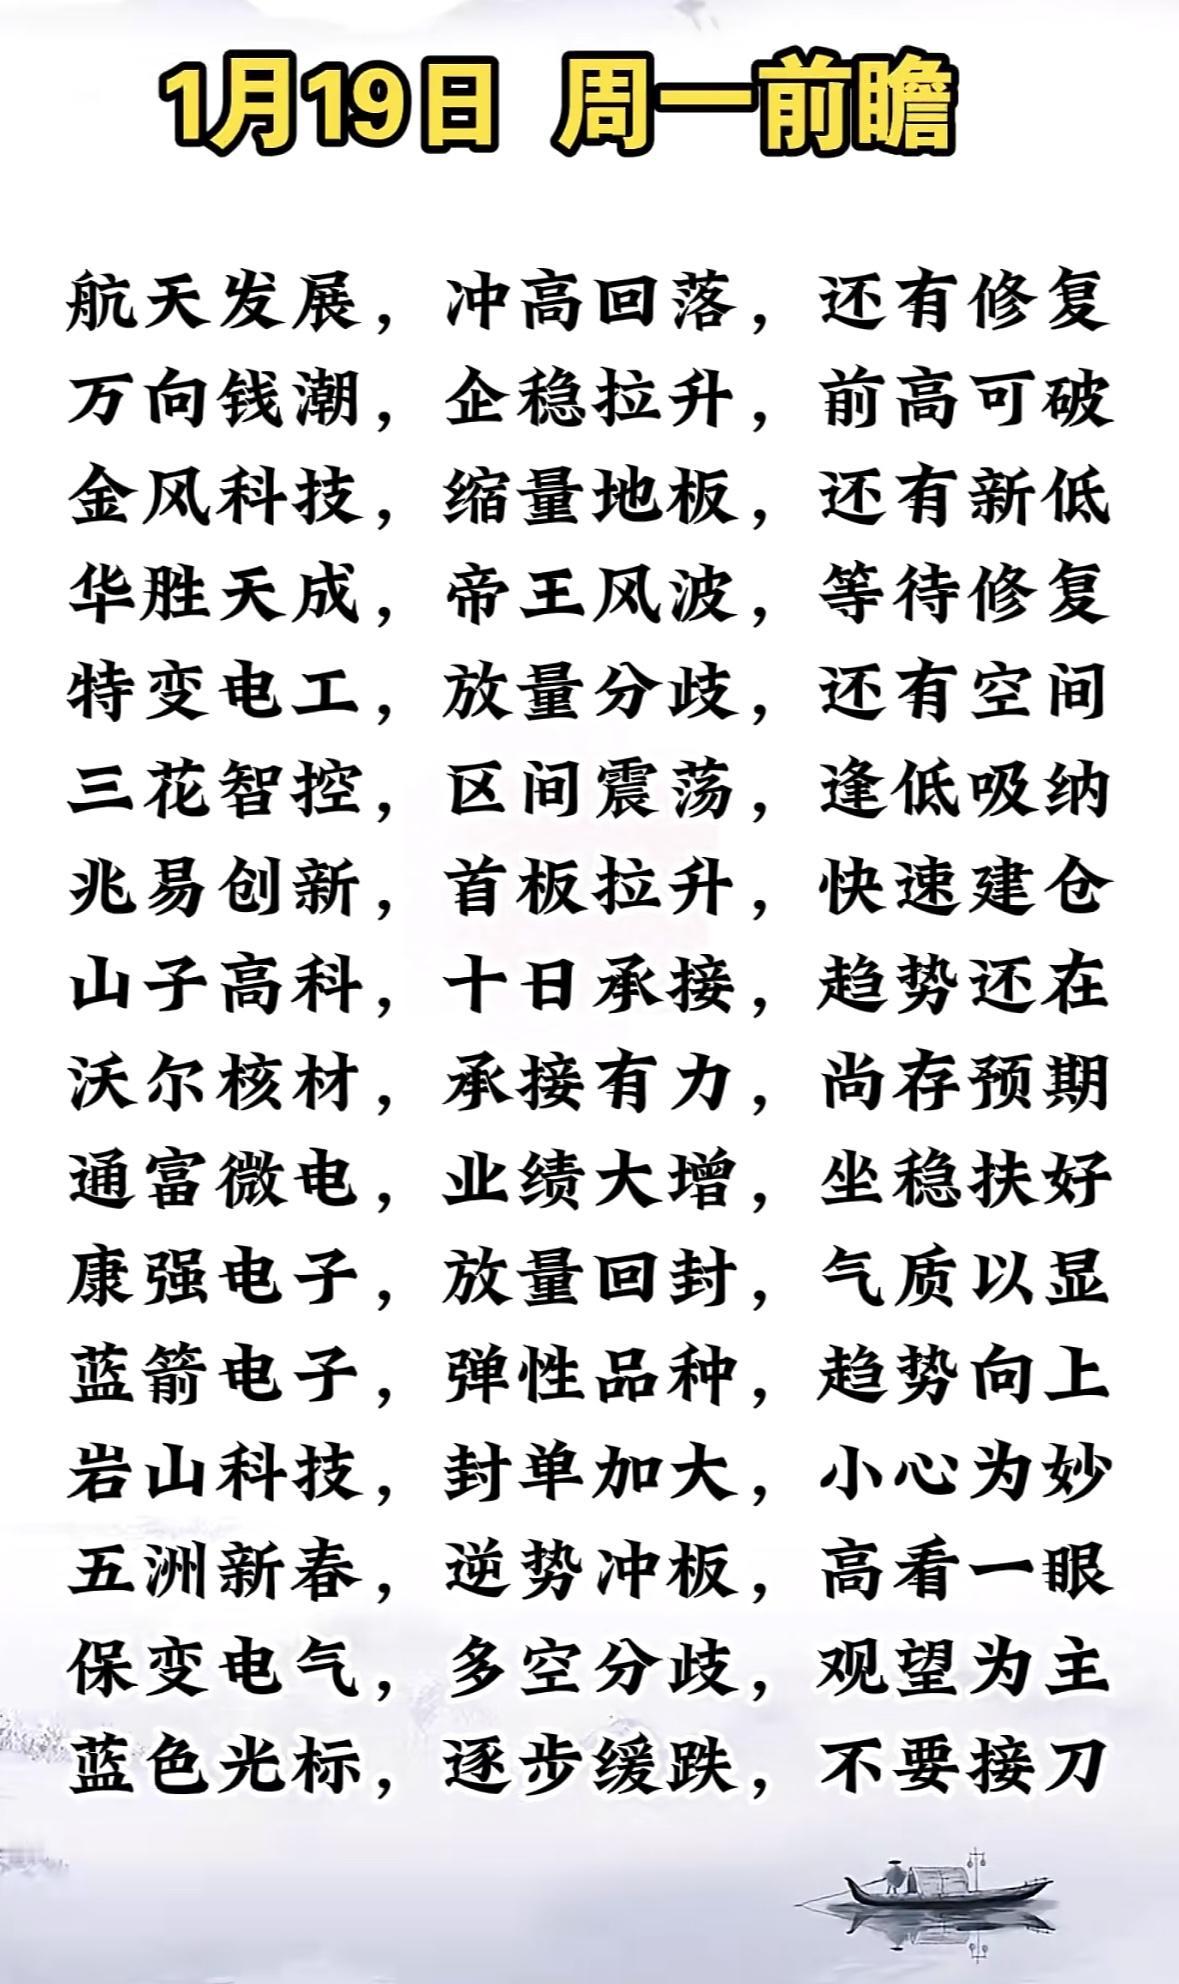 1月19日 周一前瞻
航天发展，冲高回落，还有修复
万向钱潮，企稳拉升，前高可破
金风科技，缩量地板，还有新低
华胜天成，帝王风波，等待修复
特变电工，放量分歧，还有空间
三花智控，区间震荡，逢低吸纳
兆易创新，首板拉升，快速建仓
山子高科，十日承接，趋势还在
沃尔核材，承接有力，尚存预期
通富微电，业绩大增，坐稳扶好
康强电子，放量回封，气质以显
蓝箭电子，弹性品种，趋势向上
岩山科技，封单加大，小心为妙
五洲新春，逆势冲板，高看一眼
保变电气，多空分歧，观望为主
蓝色光标，逐步缓跌，不要接刀